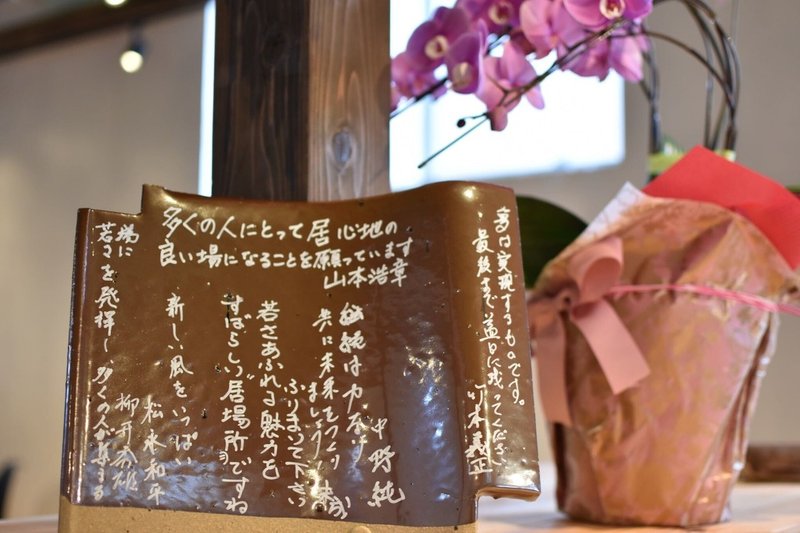 多くの人にとって居心地の
良い場になることを願っています
山本浩章
夢は実現するものです。
最後まで益田に残ってください
継続は力なり
中野純
共に未来をつくり
ましょう
若さあふれる魅力を
ふりまいて下さい
すばらしい居場所ですね
新しい風をいっぱい
松永和平
場に
若さを発揮し多くの人が集まる
柳井